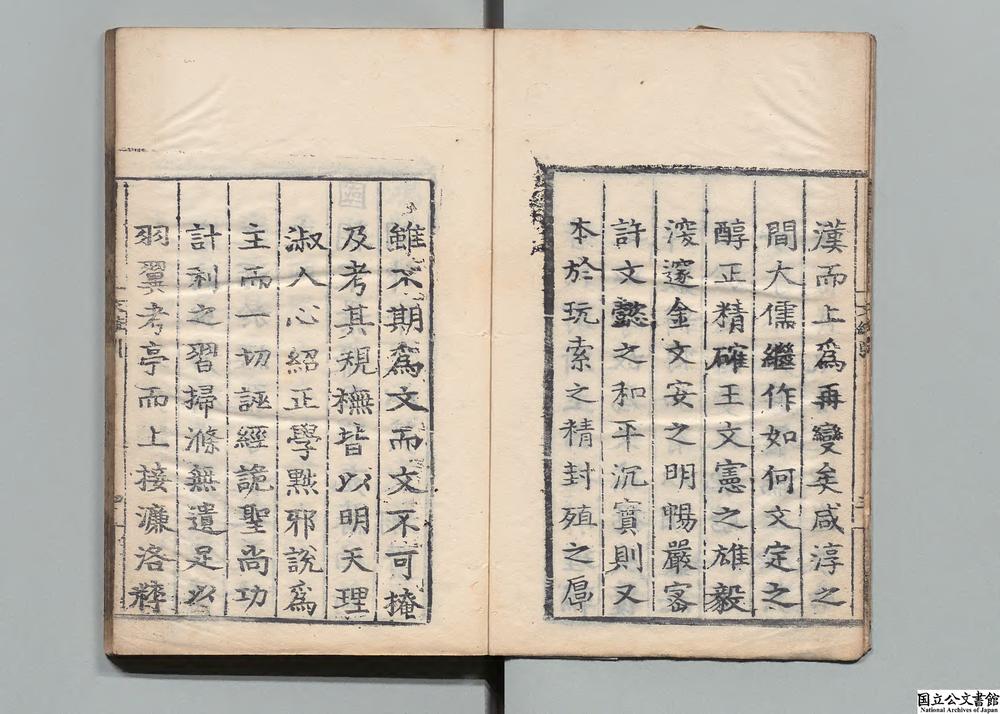 漢而上為再變矣咸淳之
間大儒繼作如何文定之
醇正精確王文憲之雄毅
濅邃金文安之明暢嚴宻
許文懿之和平沉實則又
本於玩索之精封殖之厚
雖不期為文而文不可掩
及考其規橅皆以明天理
淑人心紹正學㸃邪說為
主而一切誣經詭聖尚功
計利之習掃滌無遺足以
羽翼考亭而上接濂洛粹
国立公文書館
National Archives of Japan